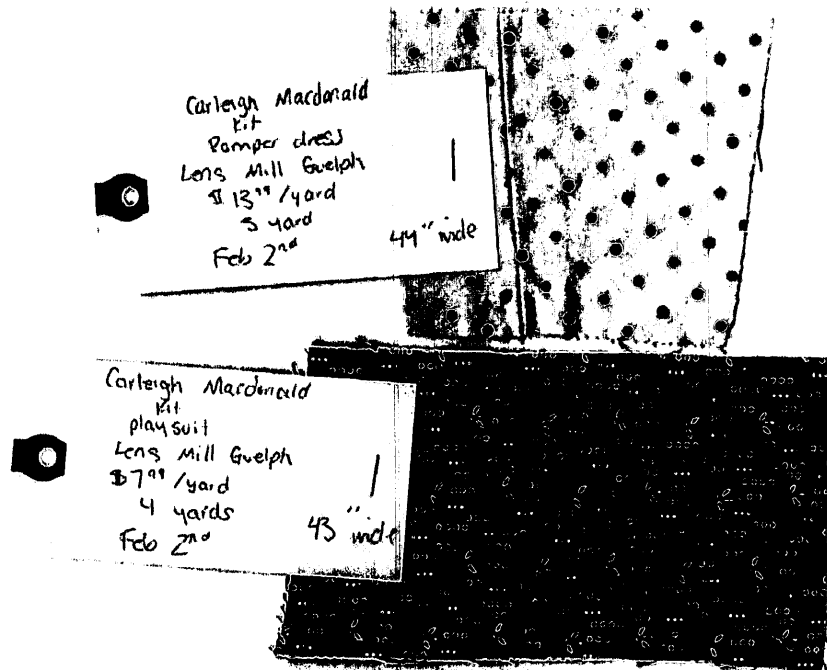 Carleigh Macdonald
Kit
Romper dress
Lens Mill Guelph
$13.99 /yard
5 yard
Feb 2nd
1
44" wide
Carleigh Macdonald
Kit
playsuit
Lens Mill Guelph
$7.99 /yard
4 yards
Feb 2nd
1
43" wide